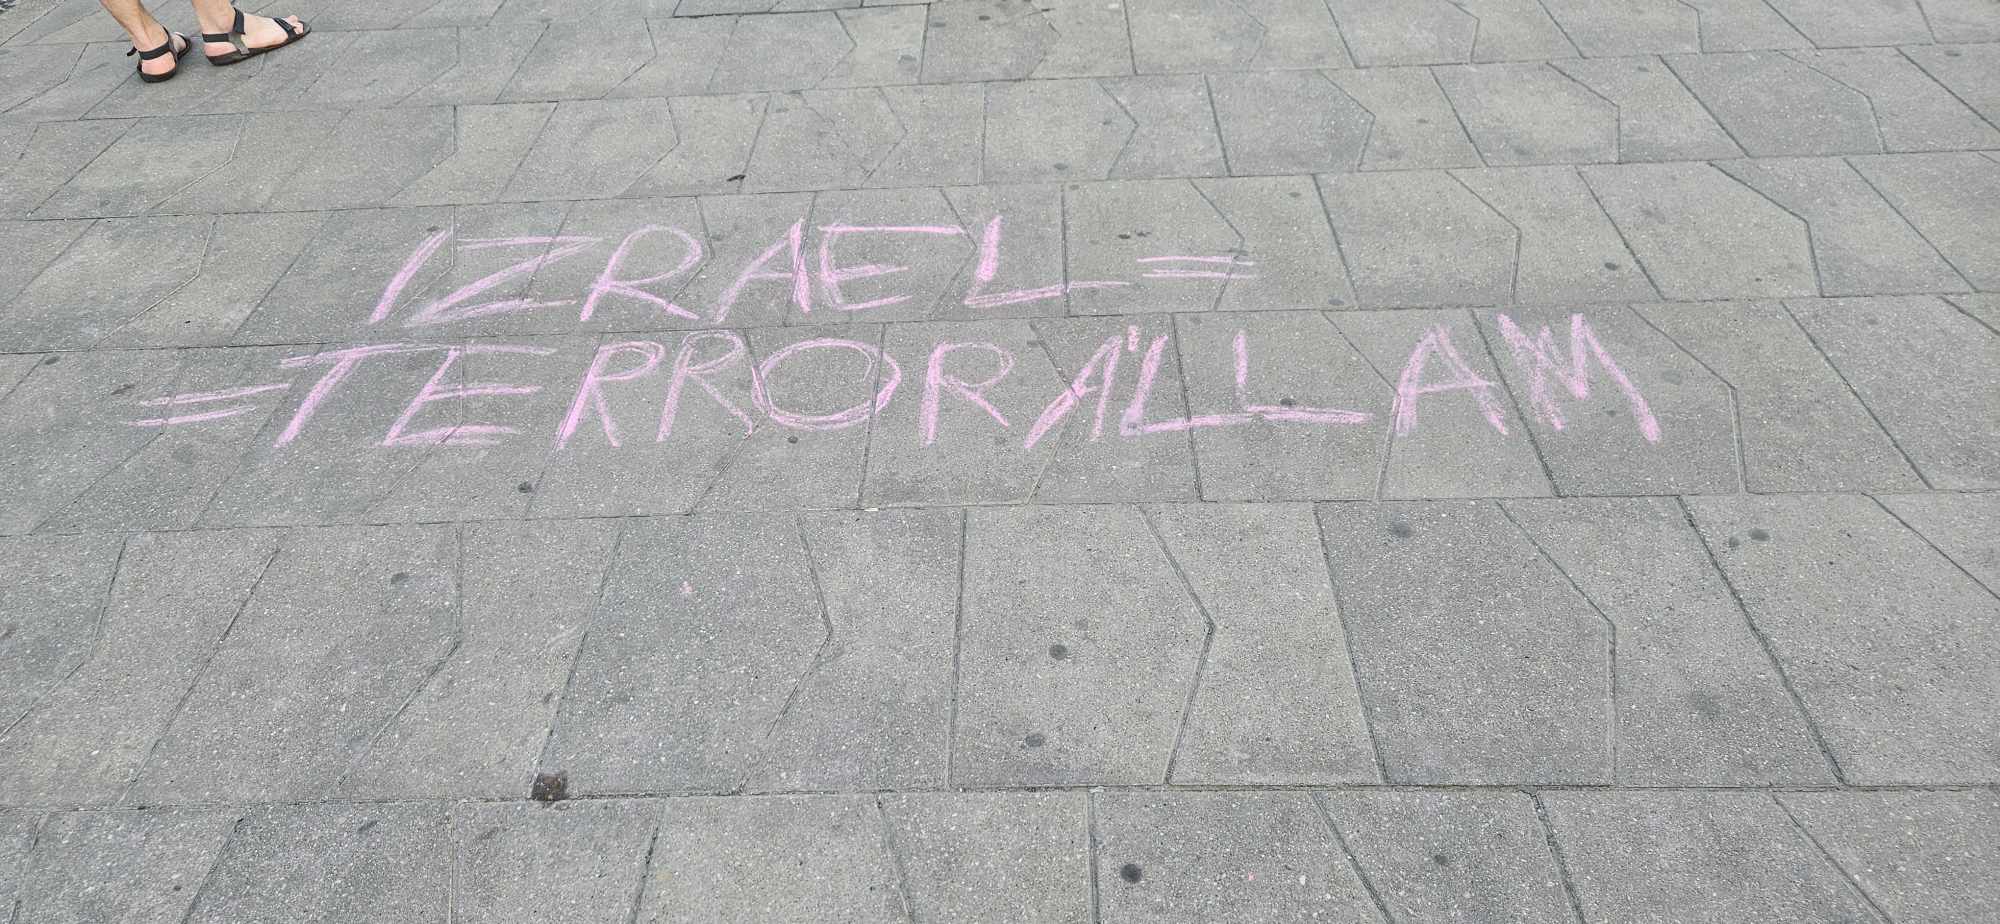 IZRAEL =
= TERRORÁLLAM